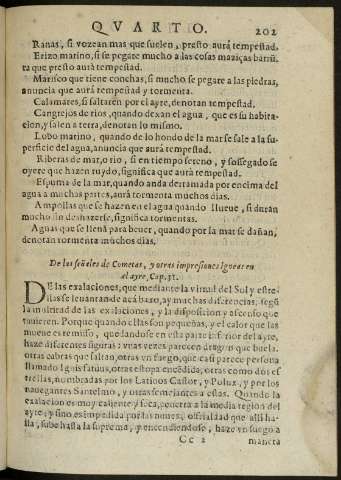 QVARTO. 202
Ranas, si vozean mas que suelen, presto aurá tempestad.
Erizo marino, si se pegare mucho a las cosas maziças barrũ
ta que presto aurá tempestad.
Marisco que tiene conchas, si mucho se pegare a las piedras,
anuncia que aurá tempestad y tormenta.
Calamares, si saltaren por el ayre, denotan tempestad.
Cangrejos de rios, quando dexan el agua, que es su habita
cion, y salen a terra, denotan lo mismo.
Lobo marino, quando de lo hondo de la mar se sale a la su-
perficie del agua, anuncia que aurá tempestad.
Riberas de mar, o rio, si en tiempo sereno, y sossegado se
oyere que hazen ruydo, significa que aurá tempestad.
Espuma de la mar, quando anda derramada por encima del
agua a muchas partes, aurá tormenta muchos dias.
Ampollas que se hazen en el agua quando llueue, si duran
mucho sin deshazerse, significa tormentas.
Aguas que se llenã para beuer, quando por la mar se dañan,
denotan tormenta muchos dias.
De las señeles de Cometas, y otras impresiones Igneas en
el ayre, Cap. 31.
DE las exalaciones, que mediante la virtud del Sol y estre
llas se leuantran de acá baxo, ay muchas diferencias, segũ
la multitud de las exalaciones, y la disposicion y ascenso que
tuuieren. Porque quando ellas son pequeñas, y el calor que las
mueue es remisso, quedandose en esta parte inferior del ayre,
haze diferentes figuras: vnas vezes parecen dragon que buela.
otras cabras que saltan, otras vn fuego, que casi parece persona
llamado Ignis fatuus, otras estopa encẽdida, otras como dos es
trellas, nombradas por los Latinos Castor, y Polux, y por los
nauegantes Santelmo, y otras semejantes a estas. Quando la
exalacion es muy caliente y seca, penetra a la media region del
ayre: y sino es impedida por las nuues,
llas, sube hasta la suprema, y encendiendose, haze vn fuego a
Cc 2 manera